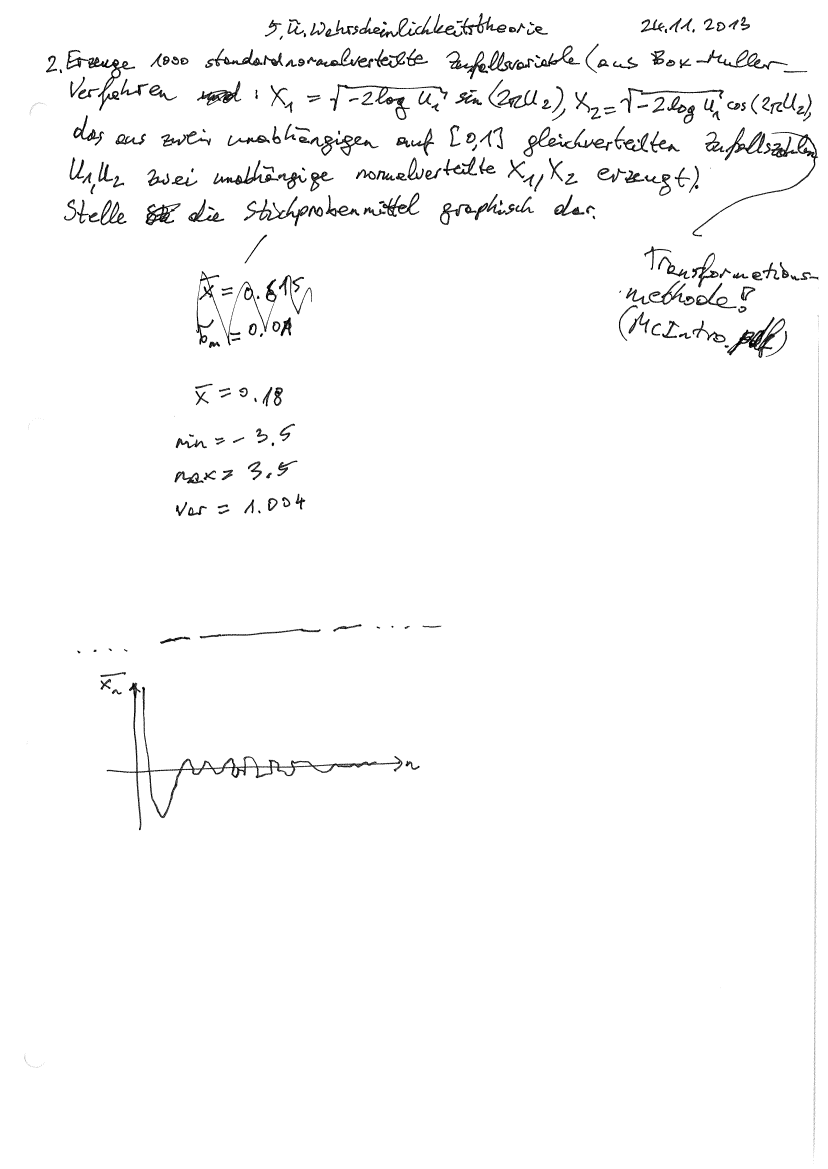 5. Ü. Wahrscheinlichkeitstheorie 24.11.2013
2. Erzeuge 1000 standardnormalverteilte Zufallsvariable (aus Box-Muller-
Verfahren : X₁ = √-2log U₁ sin(2πU₂), X₂ = √-2log U₁ cos(2πU₂),
das aus zwei unabhängigen auf [0,1] gleichverteilten Zufallszahlen
U₁, U₂ zwei unabhängige normalverteilte X₁, X₂ erzeugt).
Stelle die Stichprobenmittel graphisch dar.
Transformations-
methode!
(McIntro.pdf)
x̄ = 0.18
min = - 3.5
max = 3.5
var = 1.004
x̄ₙ
n